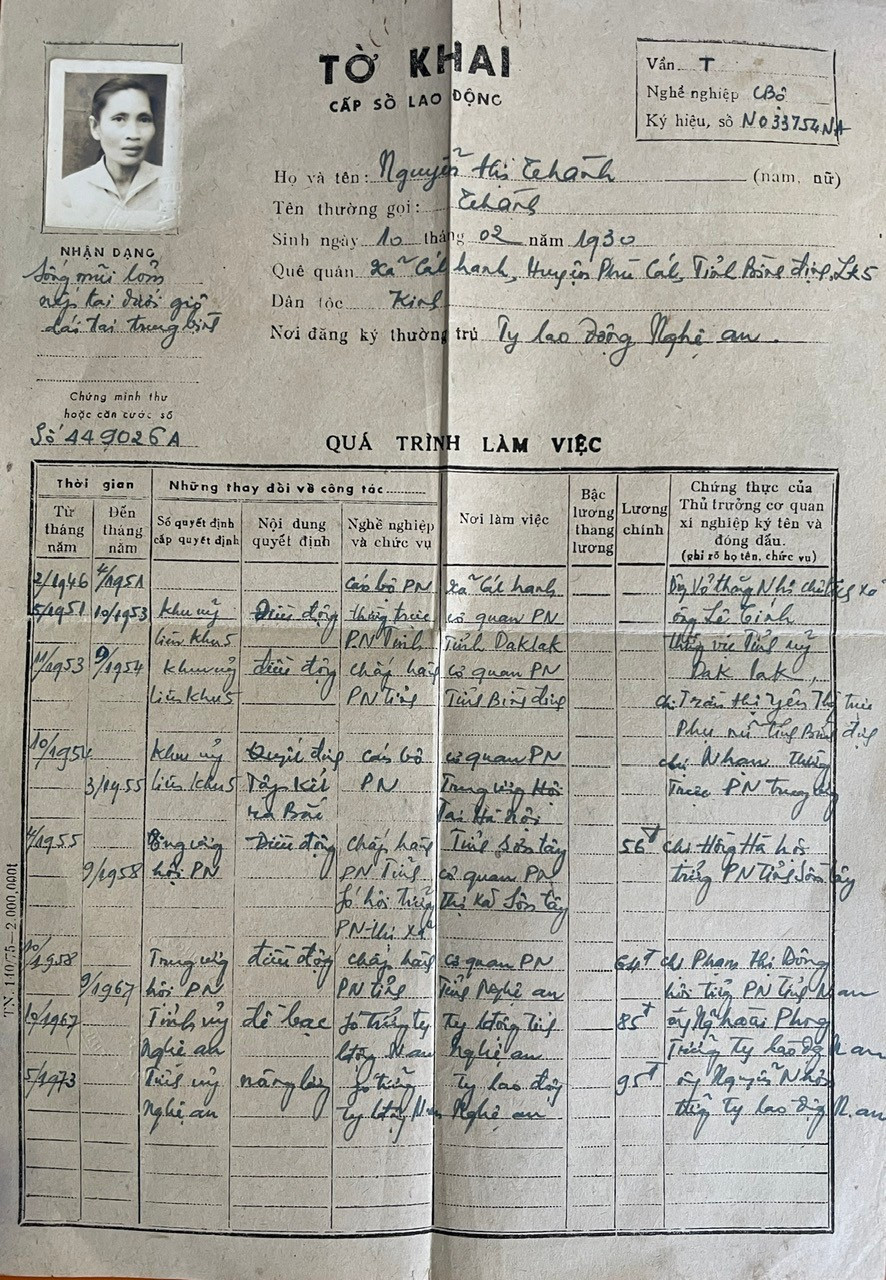 TỜ KHAI
CẤP SỔ LAO ĐỘNG
Vần T
Nghề nghiệp CBộ
Ký hiệu, số N033754NA
Họ và tên: Nguyễn thị Thành (nam, nữ)
Tên thường gọi: Thành
Sinh ngày 10 tháng 02 năm 1930
Quê quán Xã Cát hanh, Huyện Phù Cát, Tỉnh Bình định, LK5
Dân tộc Kinh
Nơi đăng ký thường trú Ty lao động Nghệ an.
NHẬN DẠNG
Sống mũi lõm
nếp tai dưới
dái tai trung bình
Chứng minh thư
hoặc căn cước số
Số 449026A
QUÁ TRÌNH LÀM VIỆC
Thời gian
Những thay đổi về công tác
Từ tháng năm
Đến tháng năm
Số quyết định cấp quyết định
Nội dung quyết định
Nghề nghiệp và chức vụ
Nơi làm việc
Bậc lương thang lương
Lương chính
Chứng thực của Thủ trưởng cơ quan xí nghiệp ký tên và đóng dấu.
(ghi rõ họ tên, chức vụ)
2/1946 4/1951 cán bộ PN Xã Cát hanh ông Võ thắng Nhì chủ tịch xã
5/1951 10/1953 Khu uỷ Điều động thường trực cơ quan PN ông Lê
liên Khu 5 PN Tỉnh Tỉnh Daklak thường vụ Tỉnh uỷ
11/1953 9/1954 Khu uỷ điều động chấp hành cơ quan PN Dak lak,
liên Khu 5 PN tỉnh Tỉnh Bình định chị Trần thị Yên Thg trực
Phụ nữ tỉnh Bình định
10/1954 Khu uỷ Quyết định cán bộ cơ quan PN chị Nhàn thường
3/1955 liên Khu 5 Tập Kết PN Trung ương Hội Trực PN trung ương
ra Bắc Tại Hà nội
4/1955 Trung ương Điều động chấp hành Tỉnh Sơn tây 56đ chị Hồng Hà hội
9/1958 hội PN PN Tỉnh cơ quan PN trưởng PN tỉnh Sơn tây
fó hội trưởng Thị Xã Sơn tây
PN thị xã
10/1958 Trung ương điều động chấp hành cơ quan PN 64đ chị Phạm thị Dông
9/1967 hội PN PN tỉnh Tỉnh Nghệ an hội trưởng PN tỉnh N an
10/1967 Tỉnh uỷ đề bạc fó trưởng ty Ty lđộng tỉnh 85đ ông Ng hoài Phong
Nghệ an lđộng N an Nghệ an Trưởng Ty lao độg N an
5/1973 Tỉnh uỷ nâng lương fó trưởng Ty lao động 95đ ông Nguyễn
Nghệ an ty lđộng N.an Nghệ an trưởng Ty lao động N.an
TN. 140/75-2.000.000t